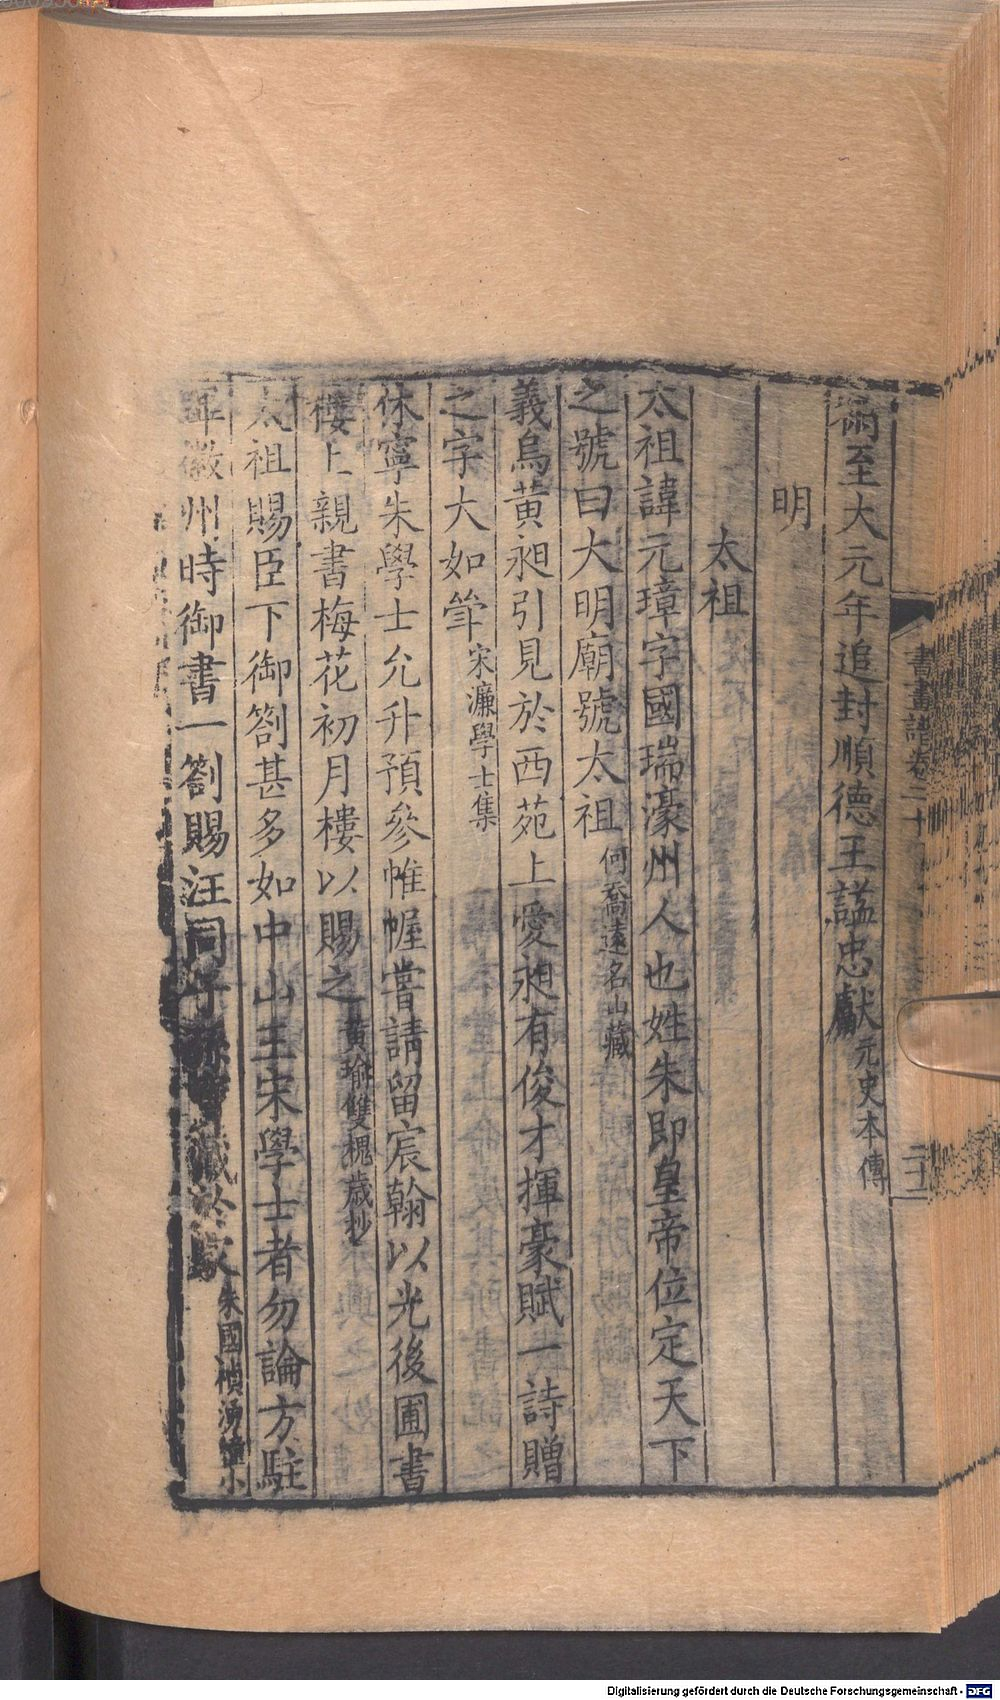 書畫譜卷二十
二十二
至大元年追封順德王諡忠獻元史本傳
明
太祖
太祖諱元璋字國瑞濠州人也姓朱即皇帝位定天下
之號曰大明廟號太祖何喬遠名山藏
義烏黃昶引見於西苑上愛昶有俊才揮豪賦一詩贈
之字大如斝宋濂學士集
休寧朱學士允升預參帷幄嘗請留宸翰以光後圃書
樓上親書梅花初月樓以賜之黃瑜雙槐歲抄
太祖賜臣下御劄甚多如中山王宋學士者勿論方駐
徽州時御書一劄賜汪同子孫藏於家朱國禎湧幢小
Digitalisierung gefördert durch die Deutsche Forschungsgemeinschaft - DFG